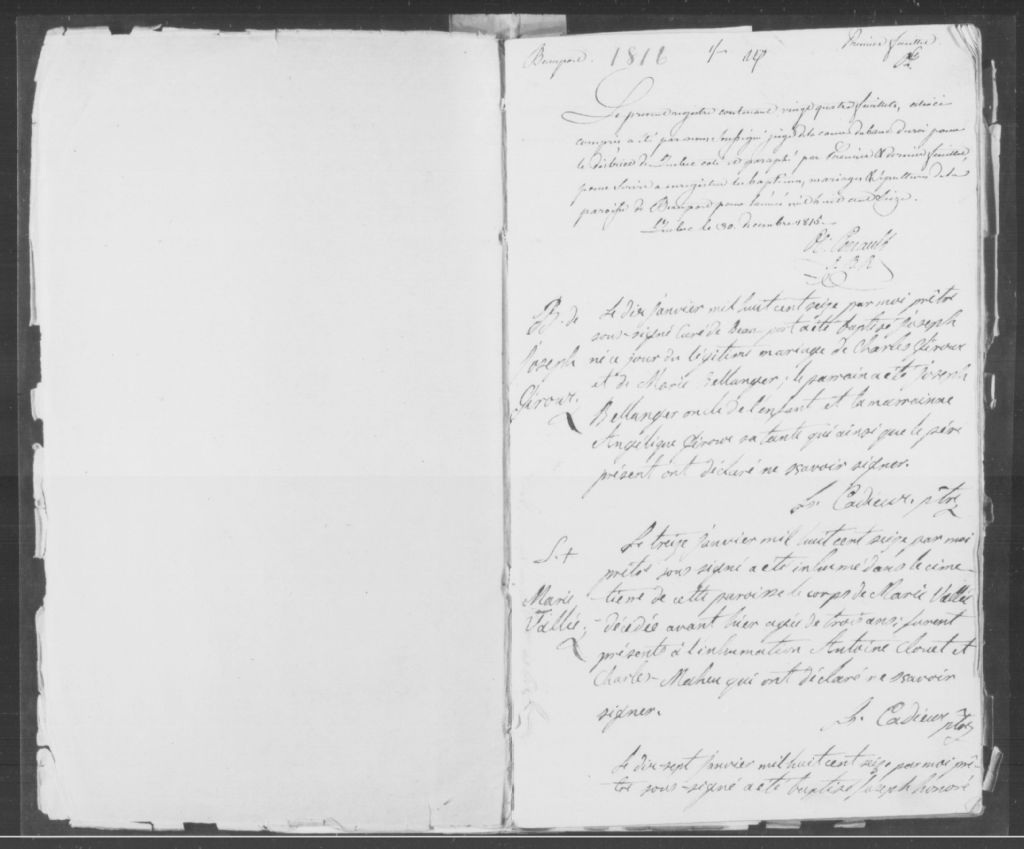 Beauport. 1816 Première feuillet
Le présent registre contenant vingt quatre feuillets, celui ci
compris a été par nous soussigné juge de la cour du banc du roi pour
le district de Québec coté et paraphé par Premier & dernier feuillet,
pour servir a enregistrer les baptêmes, mariages & sépultures de la
paroisse de Beauport pour l'année mil huit cent seize.
Québec le 30. decembre 1815.
J. B. R
B. de
Joseph
Giroux.
Le dix janvier mil huit cent seize par moi prêtre
sous-signé Curé de Beau-port a été baptisé Joseph
né ce jour du légitime mariage de Charles Giroux
et de Marie Bellanger; le parrain a été Joseph
Bellanger oncle de l'enfant et la marrainne
Angélique Giroux sa tante qui ainsi que le père
présent ont déclaré ne savoir signer.
Cadieux ptre
S. +
Marie
Vallée;
Le treize janvier mil huit cent seize par moi
prêtre sous signé a été inhumé dans le cime-
tierre de cette paroisse le corps de Marie Vallée
décédée avant hier agée de trois ans; furent
présents à l'inhumation Antoine Clouet et
Charles Maheu qui ont déclaré ne savoir
signer.
Cadieux ptre
Le dix-sept janvier mil huit cent seize par moi prê-
tre sous-signé a été baptisé Joseph honoré